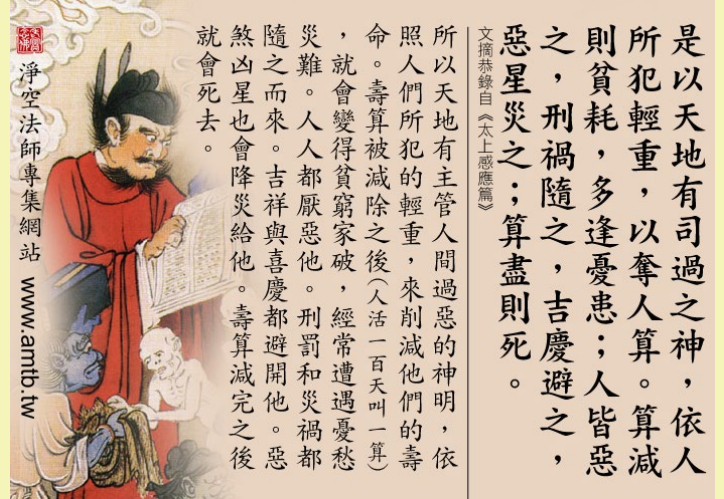 是以天地有司過之神，依人
所犯輕重，以奪人算。算減
則貧耗，多逢憂患；人皆惡
之，刑禍隨之，吉慶避之，
惡星災之；算盡則死。
文摘恭錄自《太上感應篇》
所以天地有主管人間過惡的神明，依
照人們所犯的輕重，來削減他們的壽
命。壽算被減除之後（人活一百天叫一算）
，就會變得貧窮家破，經常遭遇憂愁
災難。人人都厭惡他。刑罰和災禍都
隨之而來。吉祥與喜慶都避開他。惡
煞凶星也會降災給他。壽算減完之後
就會死去。
淨空法師專集網站 www.amtb.tw